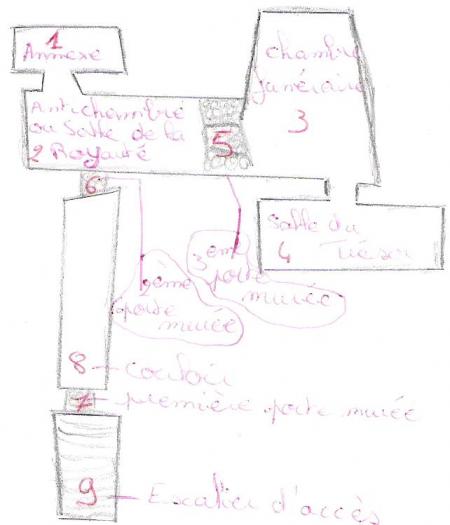 1
Annexe
Antichambre
ou Salle de la
2 Royauté
5
chambre
funéraire
3
6
Salle du
4 Trésor
2ème
porte
murée
3eme
porte
murée
8 - couloir
7 - première porte murée
9 - Escalier d'accès